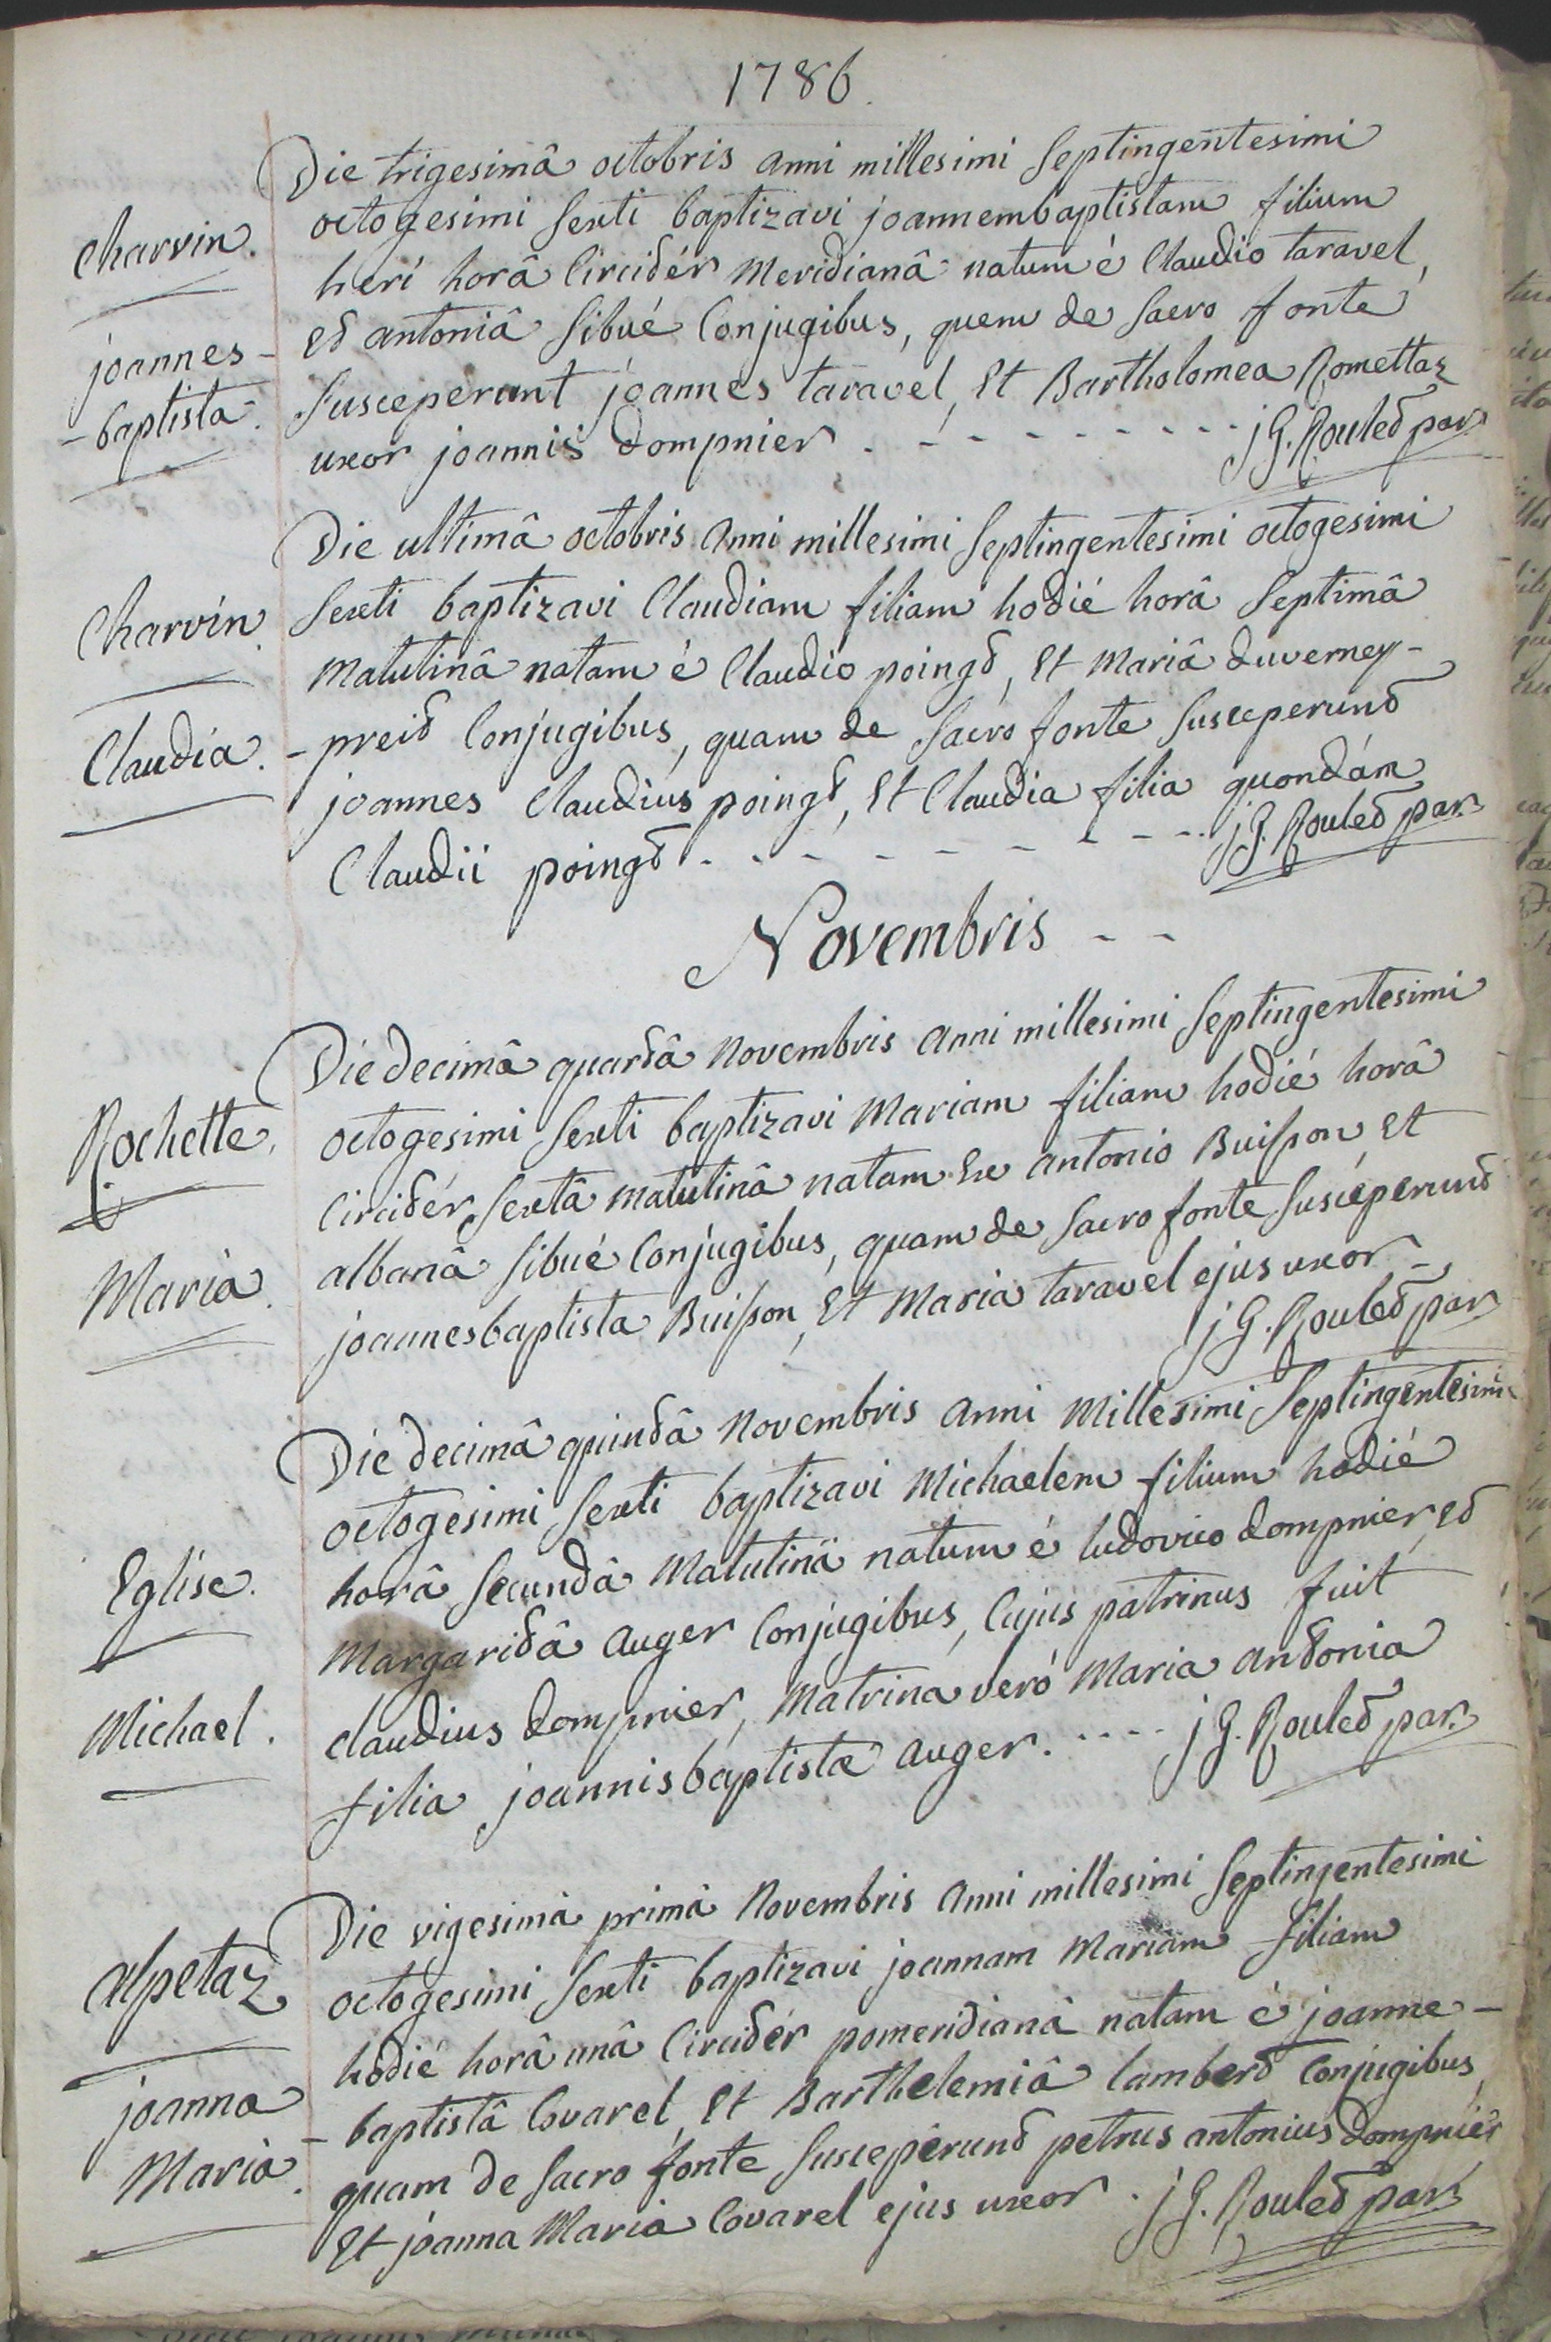 1786.
Charvin.
joannes-
-baptista.
Die trigesimâ octobris anni millesimi Septingentesimi
octogesimi Sexti baptizavi joannembaptistam filium
heri horâ Circitér Meridianâ natum é Claudio taravel,
et antoniâ Sibué Conjugibus, quem de Sacro fonte
Susceperunt joannes taravel, Et Bartholomea Romettaz
uxor joannis dompnier. - - - - - - - - - j G. Roulet par.
Charvin.
Claudia.
Die ultimâ octobris anni millesimi Septingentesimi octogesimi
Sexti baptizavi Claudiam filiam hodié horâ Septimâ
Matutinâ natam é Claudio poingt, Et Mariâ duverney-
-preit Conjugibus, quam de Sacro fonte Susceperunt
joannes Claudius poingt, Et Claudia filia quondám
Claudii poingt - - - - - - - - - j G. Roulet par.
Novembris - -
Rochette.
Maria.
Die decimâ quartâ Novembris anni millesimi Septingentesimi
octogesimi Sexti baptizavi Mariam filiam hodié horâ
Circitér Sextâ matutinâ natam Ex antonio Buisson, Et
albanâ Sibué Conjugibus, quam de Sacro fonte Susceperunt
joannesbaptista Buisson, Et Maria taravel ejus uxor -
j G. Roulet par.
Eglise.
Michael.
Die decimâ quintâ Novembris anni Millesimi Septingentesimi
octogesimi Sexti baptizavi Michaelem filium hodié
horâ Secundâ Matutinâ natum é ludovico dompnier, et
Margaritâ auger Conjugibus, Cujus patrinus fuit
claudius dompnier, Matrina veró Maria antonia
filia joannisbaptistæ auger. . . . . j G. Roulet par.
alpetaz
joanna
Maria.
Die vigesimâ primâ Novembris anni millesimi Septingentesimi
octogesimi Sexti baptizavi joannam Mariam filiam
hodié horâ unâ Circitér pomeridianâ natam é joanne-
-baptistâ Covarel, Et Barthelemiâ lambert Conjugibus,
quam de Sacro fonte Susceperunt petrus antonius dompnier
Et joanna Maria Covarel ejus uxor. j G. Roulet par.